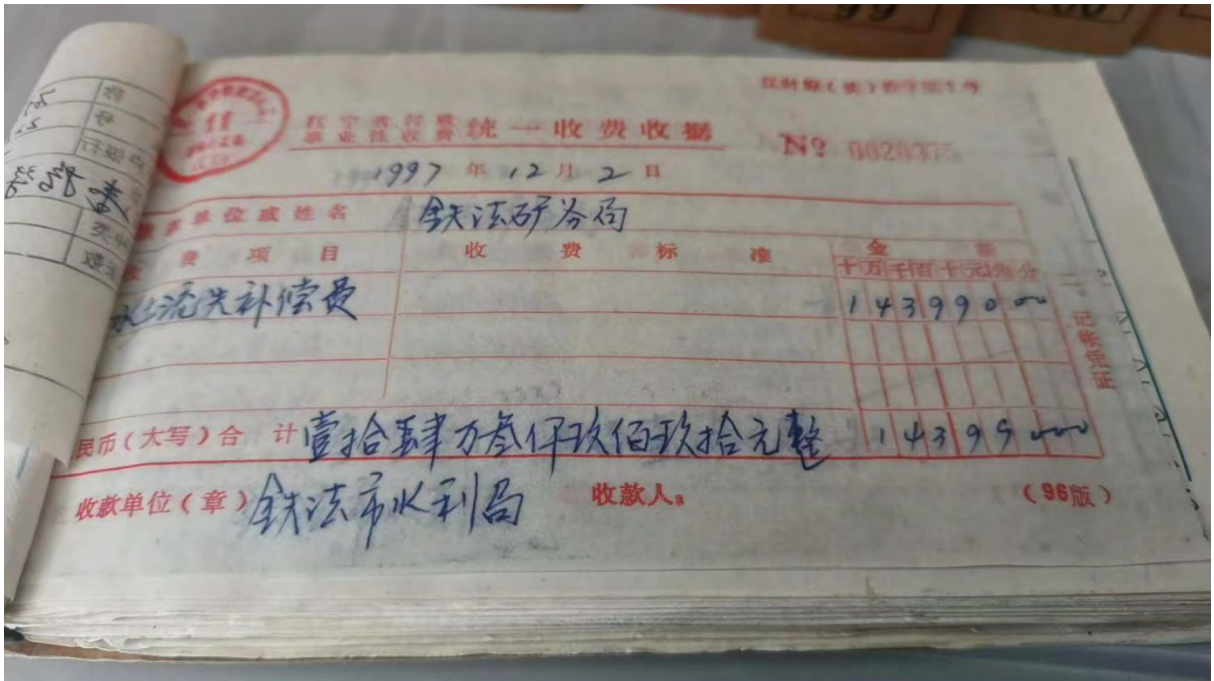 99
统一收费收据
№ 0020375
1997年12月2日
单位或姓名 铁法矿务局
费项目 收费标准 金额
十万千百十元角分
水土流失补偿费 14399000
记帐凭证
民币(大写)合计 壹拾肆万叁仟玖佰玖拾元整 14399000
收款单位(章) 铁法市水利局 收款人: (96版)